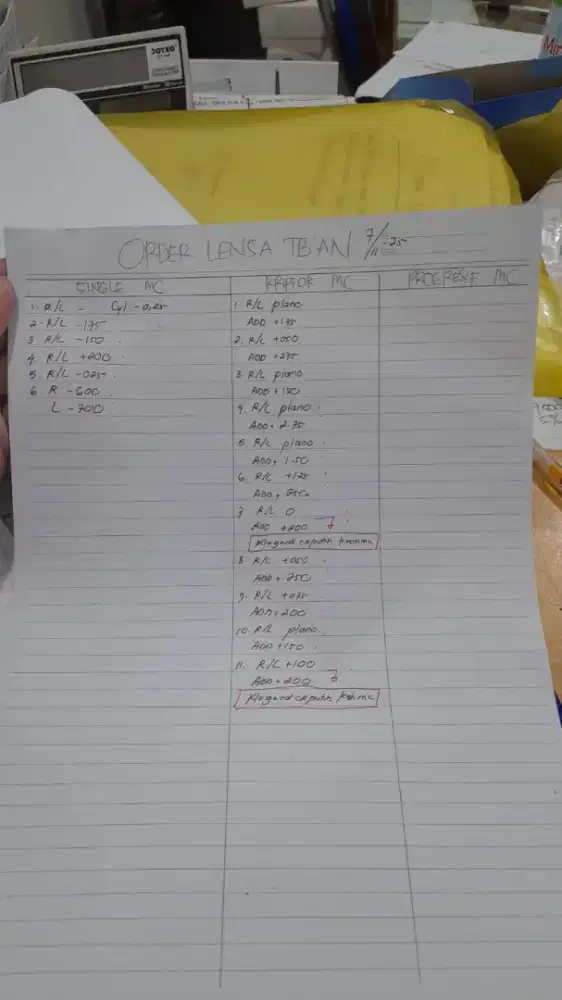 JOYKO
ORDER LENSA TBAN 7/11-25
SINGLE MC
1. R/L - Cyl -0,25
2. R/L -175
3 R/L -150
4. R/L +200
5. R/L -025
6 R -600
L -700
KRIPTOK MC
1. R/L plano
ADD +175
2. R/L +050
ADD +275
3. R/L plano
ADD +150
4. R/L plano
ADD + 2.75
5 R/L plano
ADD + 1.50
6. R/L +125
ADD +
7 R/L 0
ADD +200
putih
8 R/L +050
ADD + 250
9. R/L +075
ADD +200
10. R/L plano
ADD +150
11. R/L +100
ADD +200
putih
PROGRESIF MC